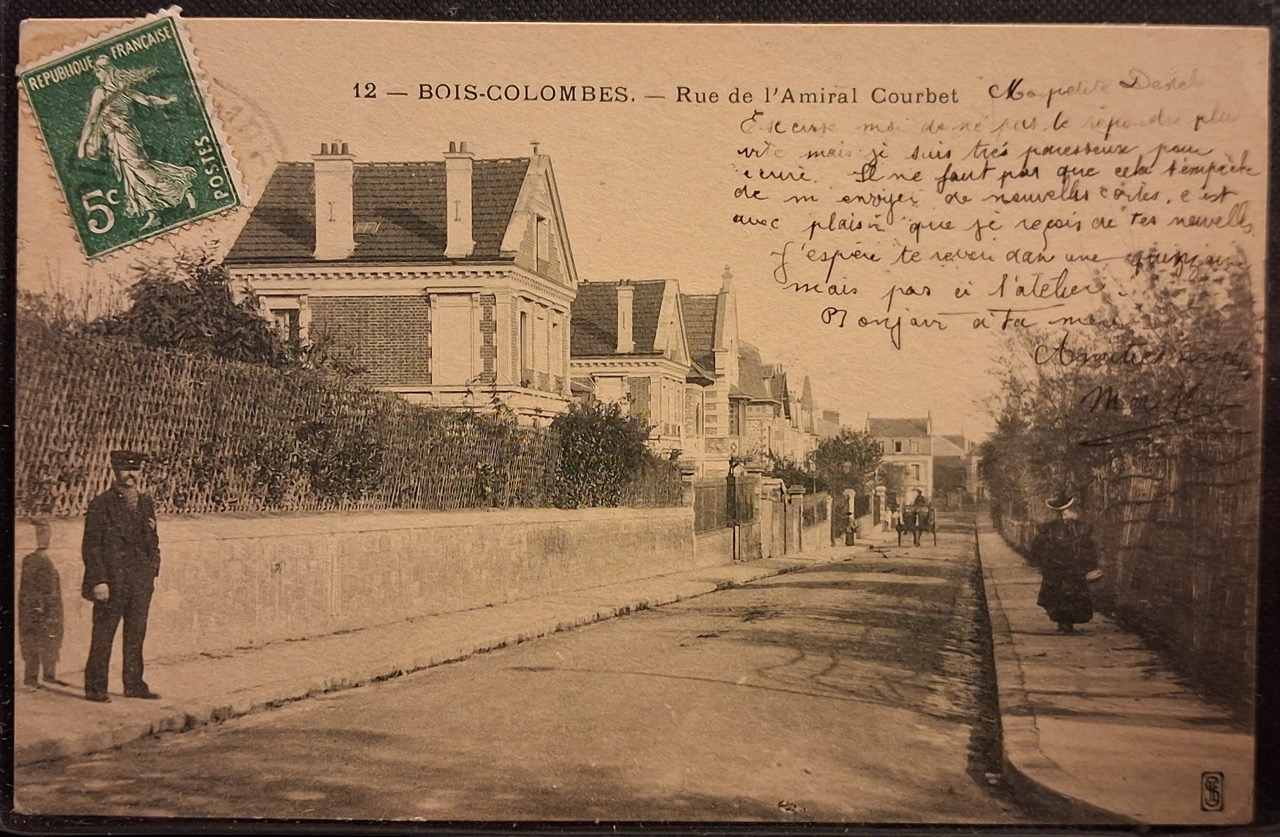 REPUBLIQUE FRANÇAISE
POSTES
5c
12 — BOIS-COLOMBES. — Rue de l'Amiral Courbet
Ma petite
Excuse moi de ne pas te répondre plus
vite mais je suis très paresseux pour
écrire. Il ne faut pas que cela t'empêche
de m'envoyer de nouvelles cartes, c'est
avec plaisir que je reçois de tes nouvelles
J'espère te revoir dans une quinzaine
mais pas à l'atelier.
Bonjour à ta